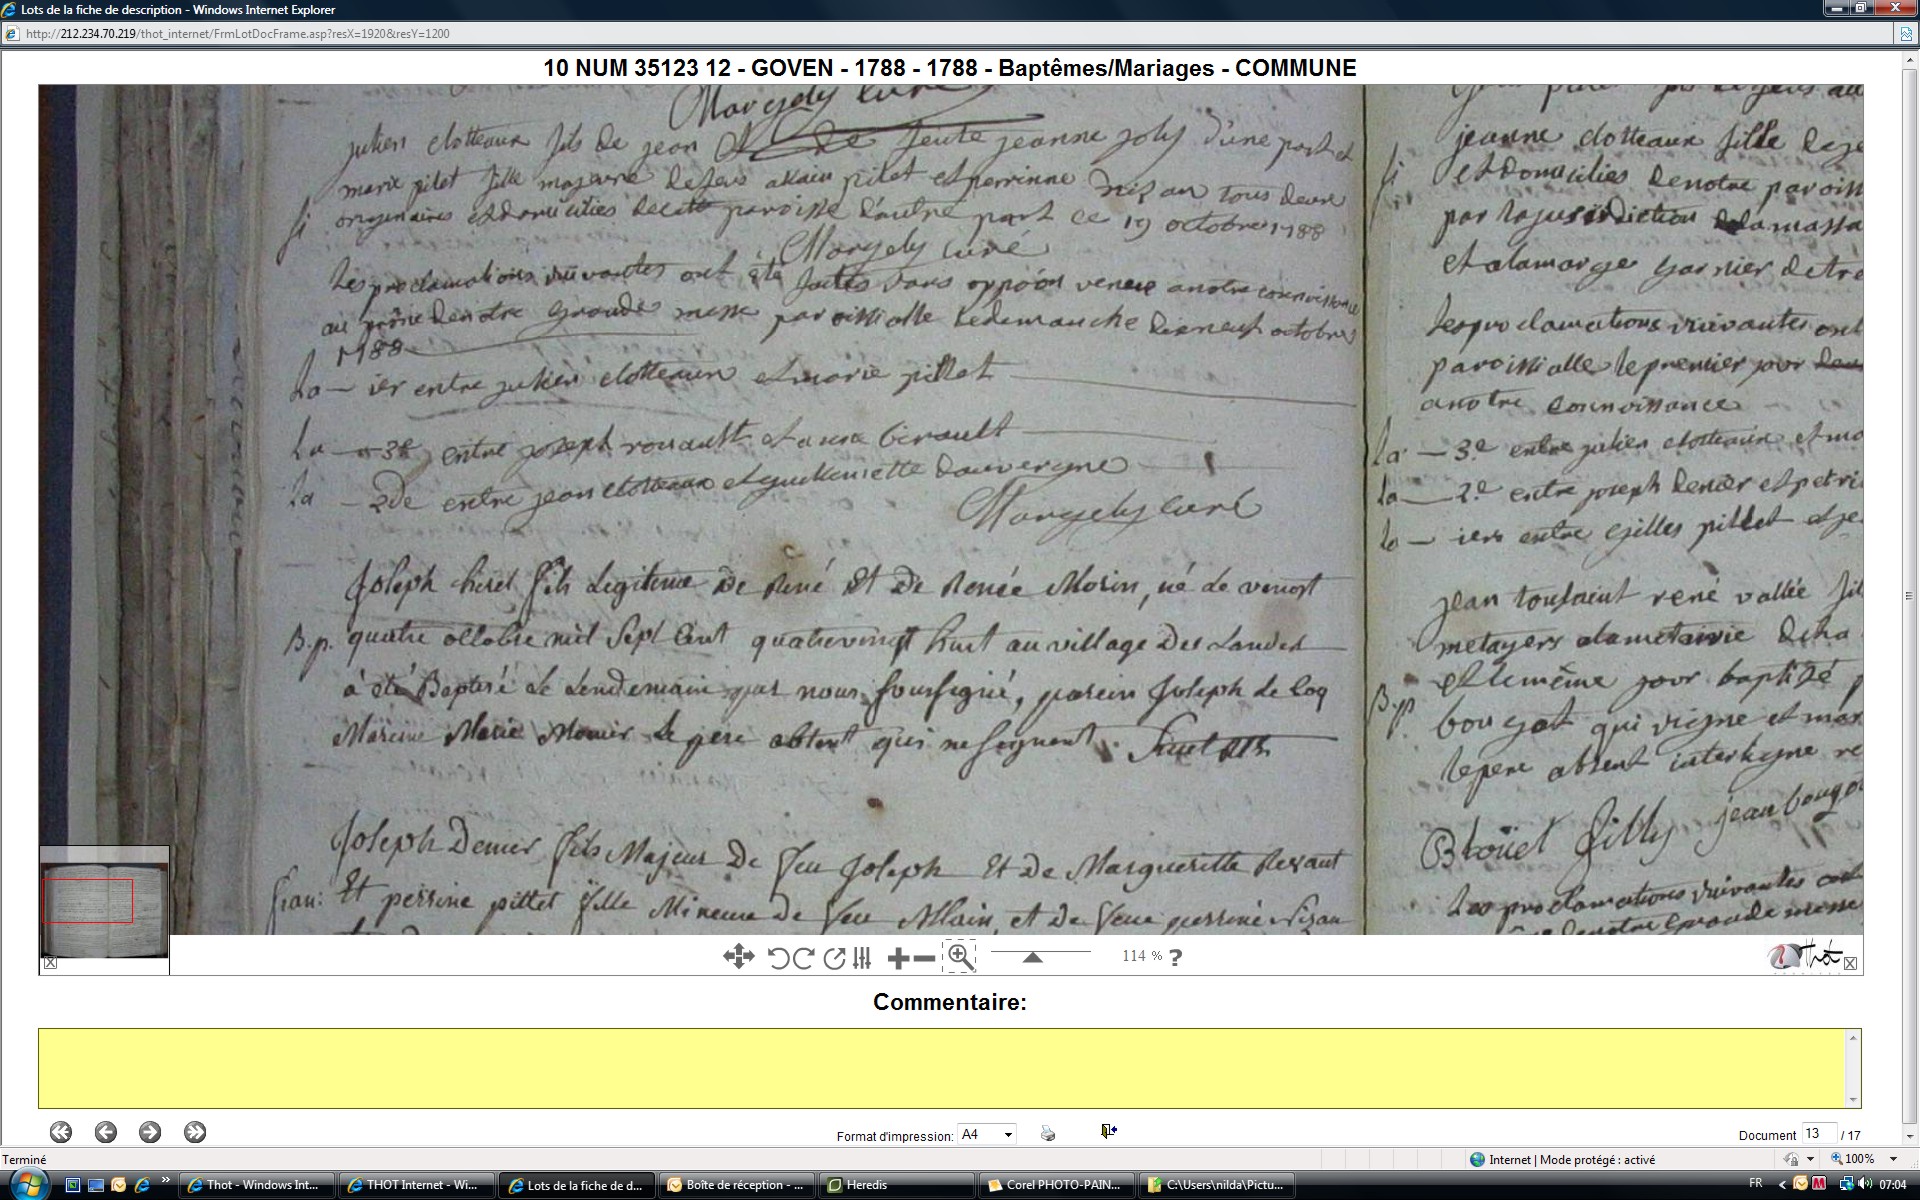 Lots de la fiche de description - Windows Internet Explorer
http://212.234.70.219/thot_internet/FrmLotDocFrame.asp?resX=1920&resY=1200
10 NUM 35123 12 - GOVEN - 1788 - 1788 - Baptêmes/Mariages - COMMUNE
Margely curé
julien clotteaux fils de jean et de feue jeanne joly d'une part et
marie pilet fille majeure de feus allain pilet et perrinne nizan tous deux
fi originaires et domiciliés de cette paroisse d'autre part ce 19 octobre 1788
Margely curé
les proclamations suivantes ont été faites sans oppôon venue a notre connoissance
au prône de notre Grande messe paroissialle le dimanche dixneuf octobre
1788
La — ier entre julien clotteaux et marie pillet
La — 3e entre joseph rouault et anne Girault
La — 2de entre jean clotteaux et guillemette dauvergne
Margely curé
Joseph hirel fils Legitime De René Et De Renée Morin, né Le vingt
B.p. quatre octobre mil Sept Cent quatrevingt huit au village Des Landes
à été Baptisé Le Lendemain par nous Soussigné, parein Joseph Le Coq
Mareine Marie Monier Le pere absent qui ne Signent.
Joseph Denier fils Majeur De feu Joseph Et De Margueritte
fian: Et perrine pillet fille Mineure De feu Allain, et De feue perrine Nizan
jeanne clotteaux fille de
fi et domiciliés de notre paroiss
par la jurisdiction de la massa
et a la marge garnier de tre
les proclamations suivantes ont
paroissialle le premier jour
a notre connoissance
La — 3e entre julien clotteaux et ma
La — 2e entre joseph denier et perri
La — iere entre Gilles pillet et je
jean toussaint rené vallée fil
metayers a la metairie de ha
et le même jour baptizé p
B.p. bougot qui signe et mar
le pere absent interligne
Blouet Filly jean bougo
Les proclamations suivantes ont
de notre Grande messe
114 % ?
Thot
Commentaire:
Format d'impression: A4
Document 13 / 17
Terminé
Internet | Mode protégé : activé
100%
Thot - Windows Int...
THOT Internet - Wi...
Lots de la fiche de d...
Boîte de réception - ...
Heredis
Corel PHOTO-PAIN...
C:\Users\nilda\Pictu...
FR
07:04